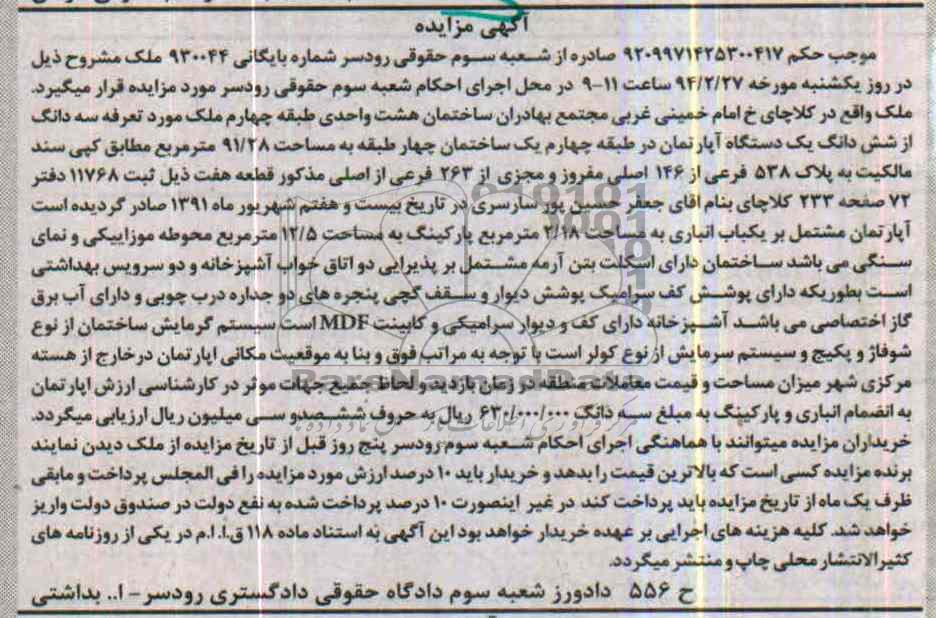 آگهی مزایده
موجب حکم ۹۲۰۹۹۷۱۴۲۵۳۰۰۴۱۷ صادره از شعبه سوم حقوقی رودسر شماره بایگانی ۹۳۰۰۴۴ ملک مشروح ذیل
در روز یکشنبه مورخه ۹۴/۲/۲۷ ساعت ۱۱-۹ در محل اجرای احکام شعبه سوم حقوقی رودسر مورد مزایده قرار میگیرد.
ملک واقع در کلاچای خ امام خمینی غربی مجتمع بهادران ساختمان هشت واحدی طبقه چهارم ملک مورد تعرفه سه دانگ
از شش دانگ یک دستگاه آپارتمان در طبقه چهارم یک ساختمان چهار طبقه به مساحت ۹۱/۲۸ مترمربع مطابق کپی سند
مالکیت به پلاک ۵۳۸ فرعی از ۱۴۶ اصلی مفروز و مجزی از ۲۶۳ فرعی از اصلی مذکور قطعه هفت ذیل ثبت ۱۱۷۶۸ دفتر
۷۲ صفحه ۲۳۳ کلاچای بنام اقای جعفر حسین پور سارسری در تاریخ بیست و هفتم شهریور ماه ۱۳۹۱ صادر گردیده است
آپارتمان مشتمل بر یکباب انباری به مساحت ۲/۱۸ مترمربع پارکینگ به مساحت ۱۲/۵ مترمربع محوطه موزاییکی و نمای
سنگی می باشد ساختمان دارای اسکلت بتن آرمه مشتمل بر پذیرایی دو اتاق خواب آشپزخانه و دو سرویس بهداشتی
است بطوریکه دارای پوشش کف سرامیک پوشش دیوار و سقف گچی پنجره های دو جداره درب چوبی و دارای آب برق
گاز اختصاصی می باشد آشپزخانه دارای کف و دیوار سرامیکی و کابینت MDF است سیستم گرمایش ساختمان از نوع
شوفاژ و پکیج و سیستم سرمایش از نوع کولر است با توجه به مراتب فوق و بنا به موقعیت مکانی اپارتمان درخارج از هسته
مرکزی شهر میزان مساحت و قیمت معاملات منطقه در زمان بازدید و لحاظ جمیع جهات موثر در کارشناسی ارزش اپارتمان
به انضمام انباری و پارکینگ به مبلغ سه دانگ ۶۳۰/۰۰۰/۰۰۰ ریال به حروف ششصدو سی میلیون ریال ارزیابی میگردد.
خریداران مزایده میتوانند با هماهنگی اجرای احکام شعبه سوم رودسر پنج روز قبل از تاریخ مزایده از ملک دیدن نمایند
برنده مزایده کسی است که بالاترین قیمت را بدهد و خریدار باید ۱۰ درصد ارزش مورد مزایده را فی المجلس پرداخت و مابقی
ظرف یک ماه از تاریخ مزایده باید پرداخت کند در غیر اینصورت ۱۰ درصد پرداخت شده به نفع دولت در صندوق دولت واریز
خواهد شد. کلیه هزینه های اجرایی بر عهده خریدار خواهد بود این آگهی به استناد ماده ۱۱۸ ق.ا.ا.م در یکی از روزنامه های
کثیرالانتشار محلی چاپ و منتشر میگردد.
ح ۵۵۶ دادورز شعبه سوم دادگاه حقوقی دادگستری رودسر - ا.. بداشتی
ParsNamadData